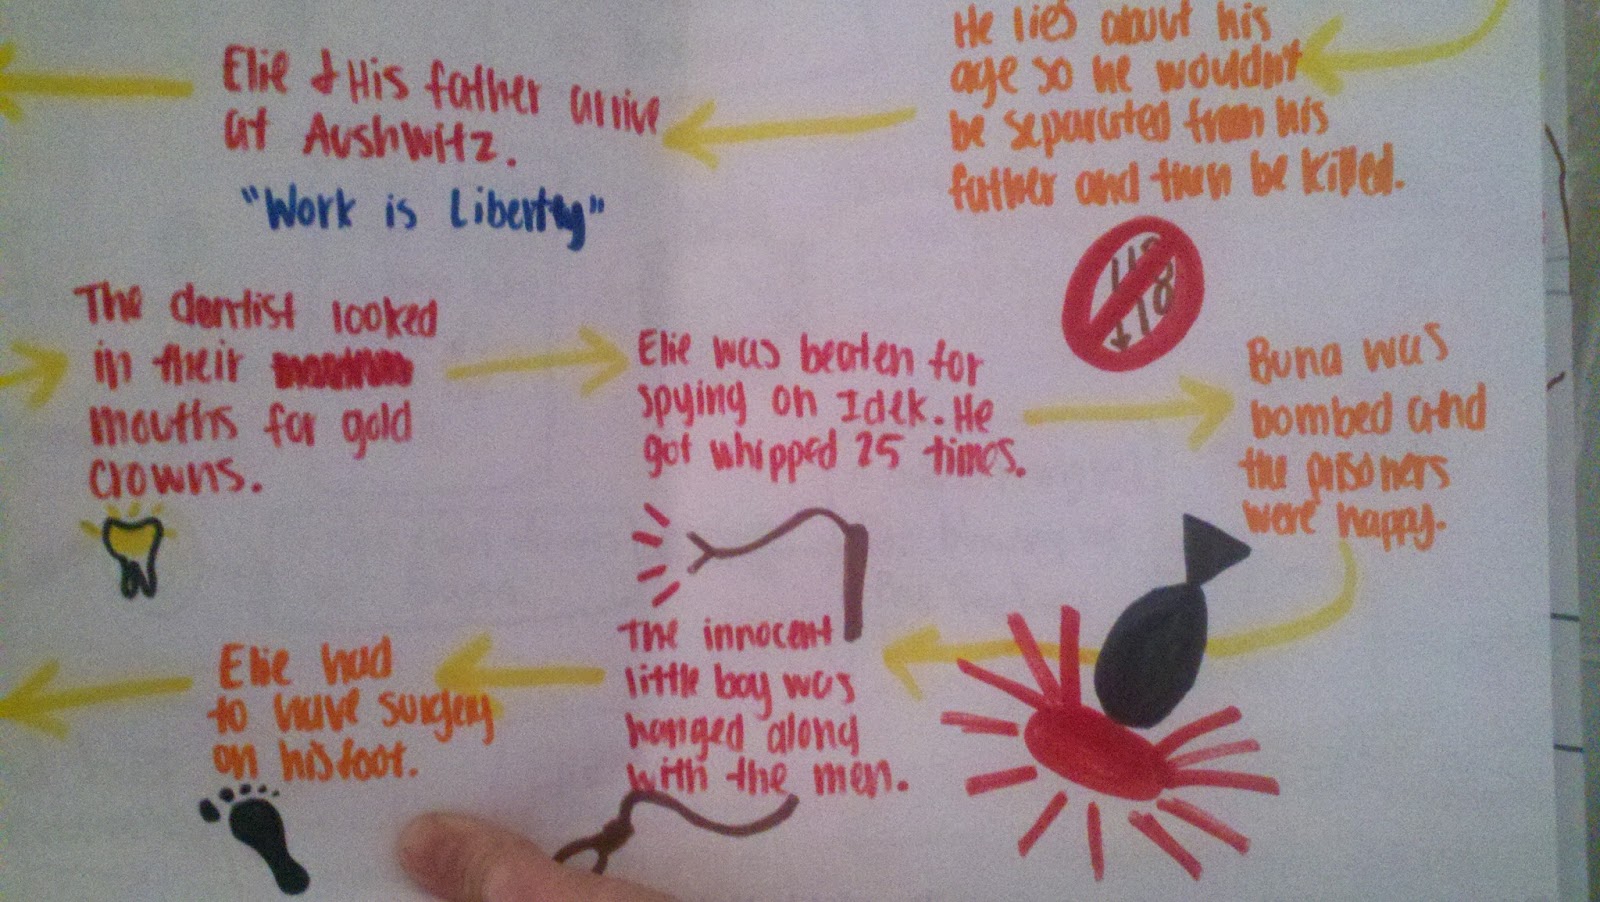 He lies about his
age so he wouldn't
be separated from his
father and then be killed.
Elie & His father arrive
at Aushwitz.
"Work is Liberty"
The dentist looked
in their
mouths for gold
crowns.
Elie was beaten for
spying on Idek. He
got whipped 25 times.
Buna was
bombed and
the prisoners
were happy.
The innocent
little boy was
hanged along
with the men.
Elie had
to have surgery
on his foot.